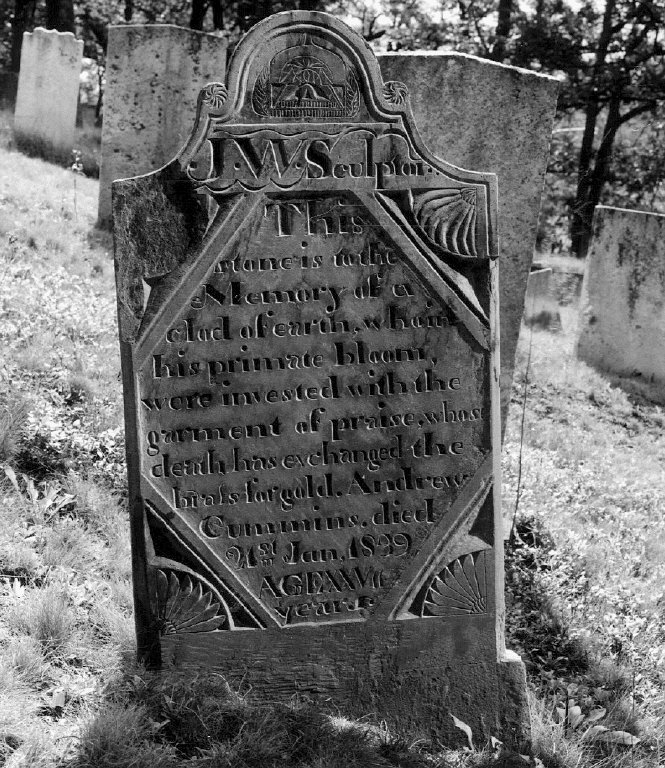 J.W.Sculptor.
This
stone is to the
Memory of a
clod of earth, who in
his primate bloom,
were invested with the
garment of praise, whos
death has exchanged the
brass for gold, Andrew
Cummins, died
Jan, 1839
AGE
years